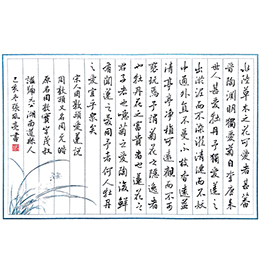 水陸草木之花可愛者甚蕃
晋陶渊明獨愛菊自李唐来
世人甚愛牡丹予獨愛蓮之
出淤泥而不染濯清漣而不妖
中通外直不蔓不枝香遠益
清亭亭净植可遠觀而不可
褻玩焉予謂菊花之隱逸者
也牡丹花之富貴者也蓮花之
君子者也噫菊之愛陶後鮮
有聞蓮之愛同予者何人牡丹
之愛宜乎衆矣
宋人周敦頤愛蓮説
周敦頤又名周元皓
原名周敦實字茂叔
謚號元公湖南道縣人
己亥年張